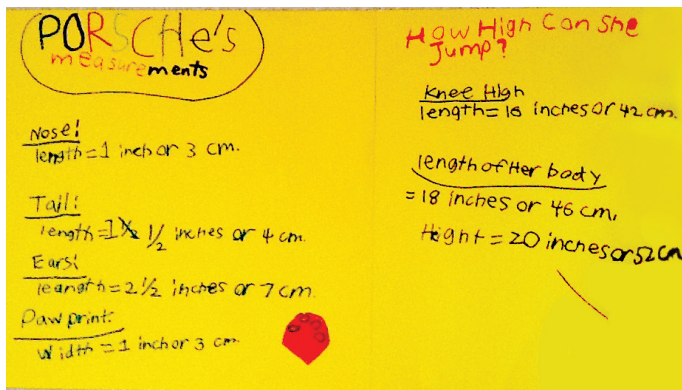 PORSCHe's
measurements
Nose!
length=1 inch or 3 cm.
Tail!
length=1 1/2 inches or 4 cm.
Ears!
leangth=2 1/2 inches or 7 cm.
Paw print:
width=1 inch or 3 cm
How High Can She
Jump?
Knee High
length= 16 inches or 42 cm.
length of Her body
=18 inches or 46 cm.
Hight=20 inches or 52 cm